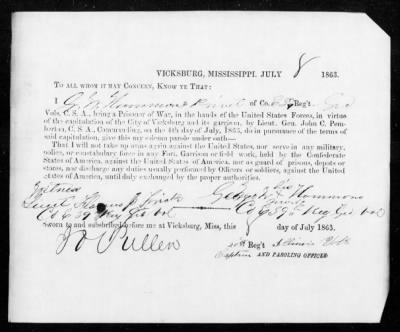 VICKSBURG, MISSISSIPPI, JULY 8 1863.
TO ALL WHOM IT MAY CONCERN, KNOW YE THAT:
I G. W. Hammond Privet of Co. Reg't Geo
Vols. C. S. A., being a Prisoner of War, in the hands of the United States Forces, in virtue
of the capitulation of the City of Vicksburg and its garrison, by Lieut. Gen. John C. Pem-
berton, C. S. A., Commanding, on the 4th day of July, 1863, do in pursuance of the terms of
said capitulation, give this my solemn parole under oath—
That I will not take up arms again against the United States, nor serve in any military,
police, or constabulary force in any Fort, Garrison or field work, held by the Confederate
States of America, against the United States of America, nor as guard of prisons, depots or
stores, nor discharge any duties usually performed by Officers or soldiers, against the United
States of America, until duly exchanged by the proper authorities.
Witness his
George Hammond
Lieut Thomas J mark
Co 39 Reg Geo vol Co 39 Reg Geo vol
Sworn to and subscribed before me at Vicksburg, Miss., this day of July 1863.
J O Pullen 20th Reg't Illinois Vols.
Captain AND PAROLING OFFICER